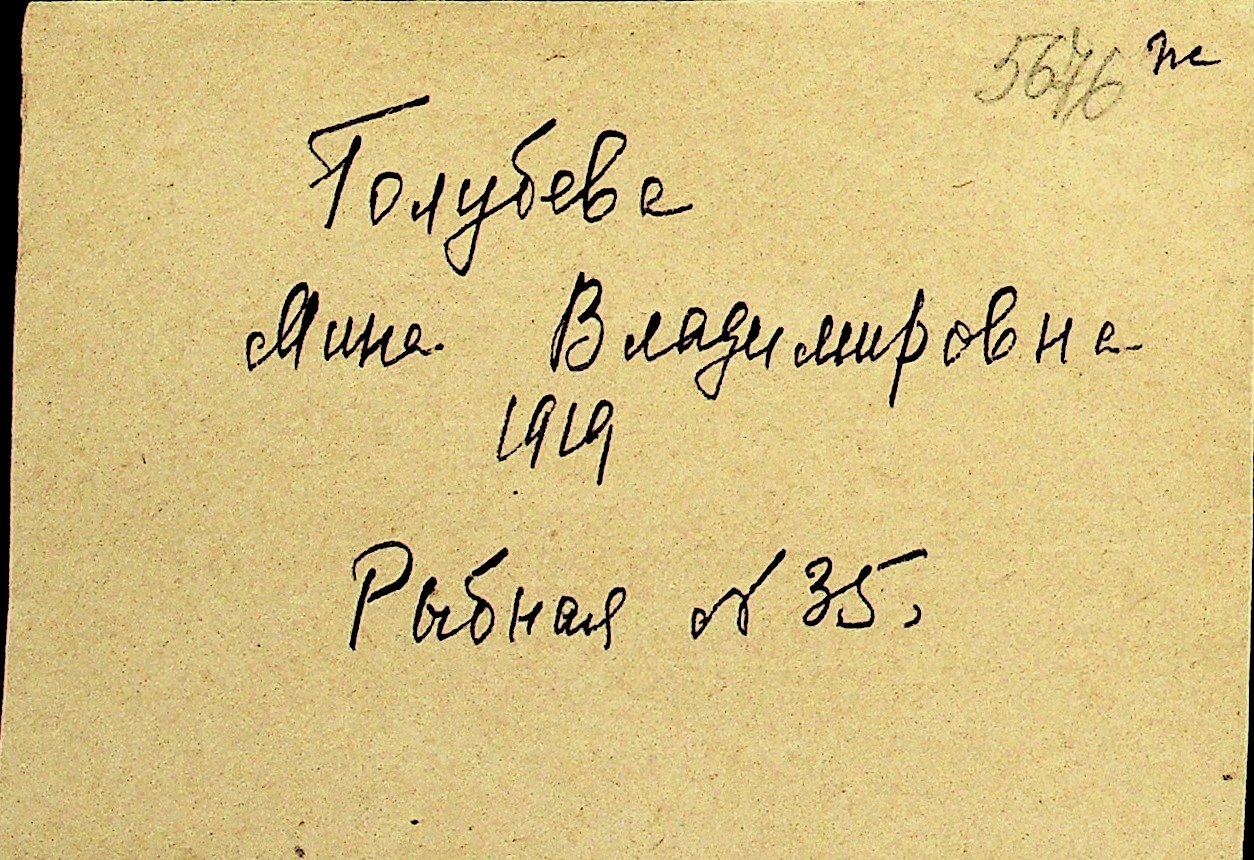 5676 не
Голубева
Мина Владимировна
1919
Рыбная № 35.